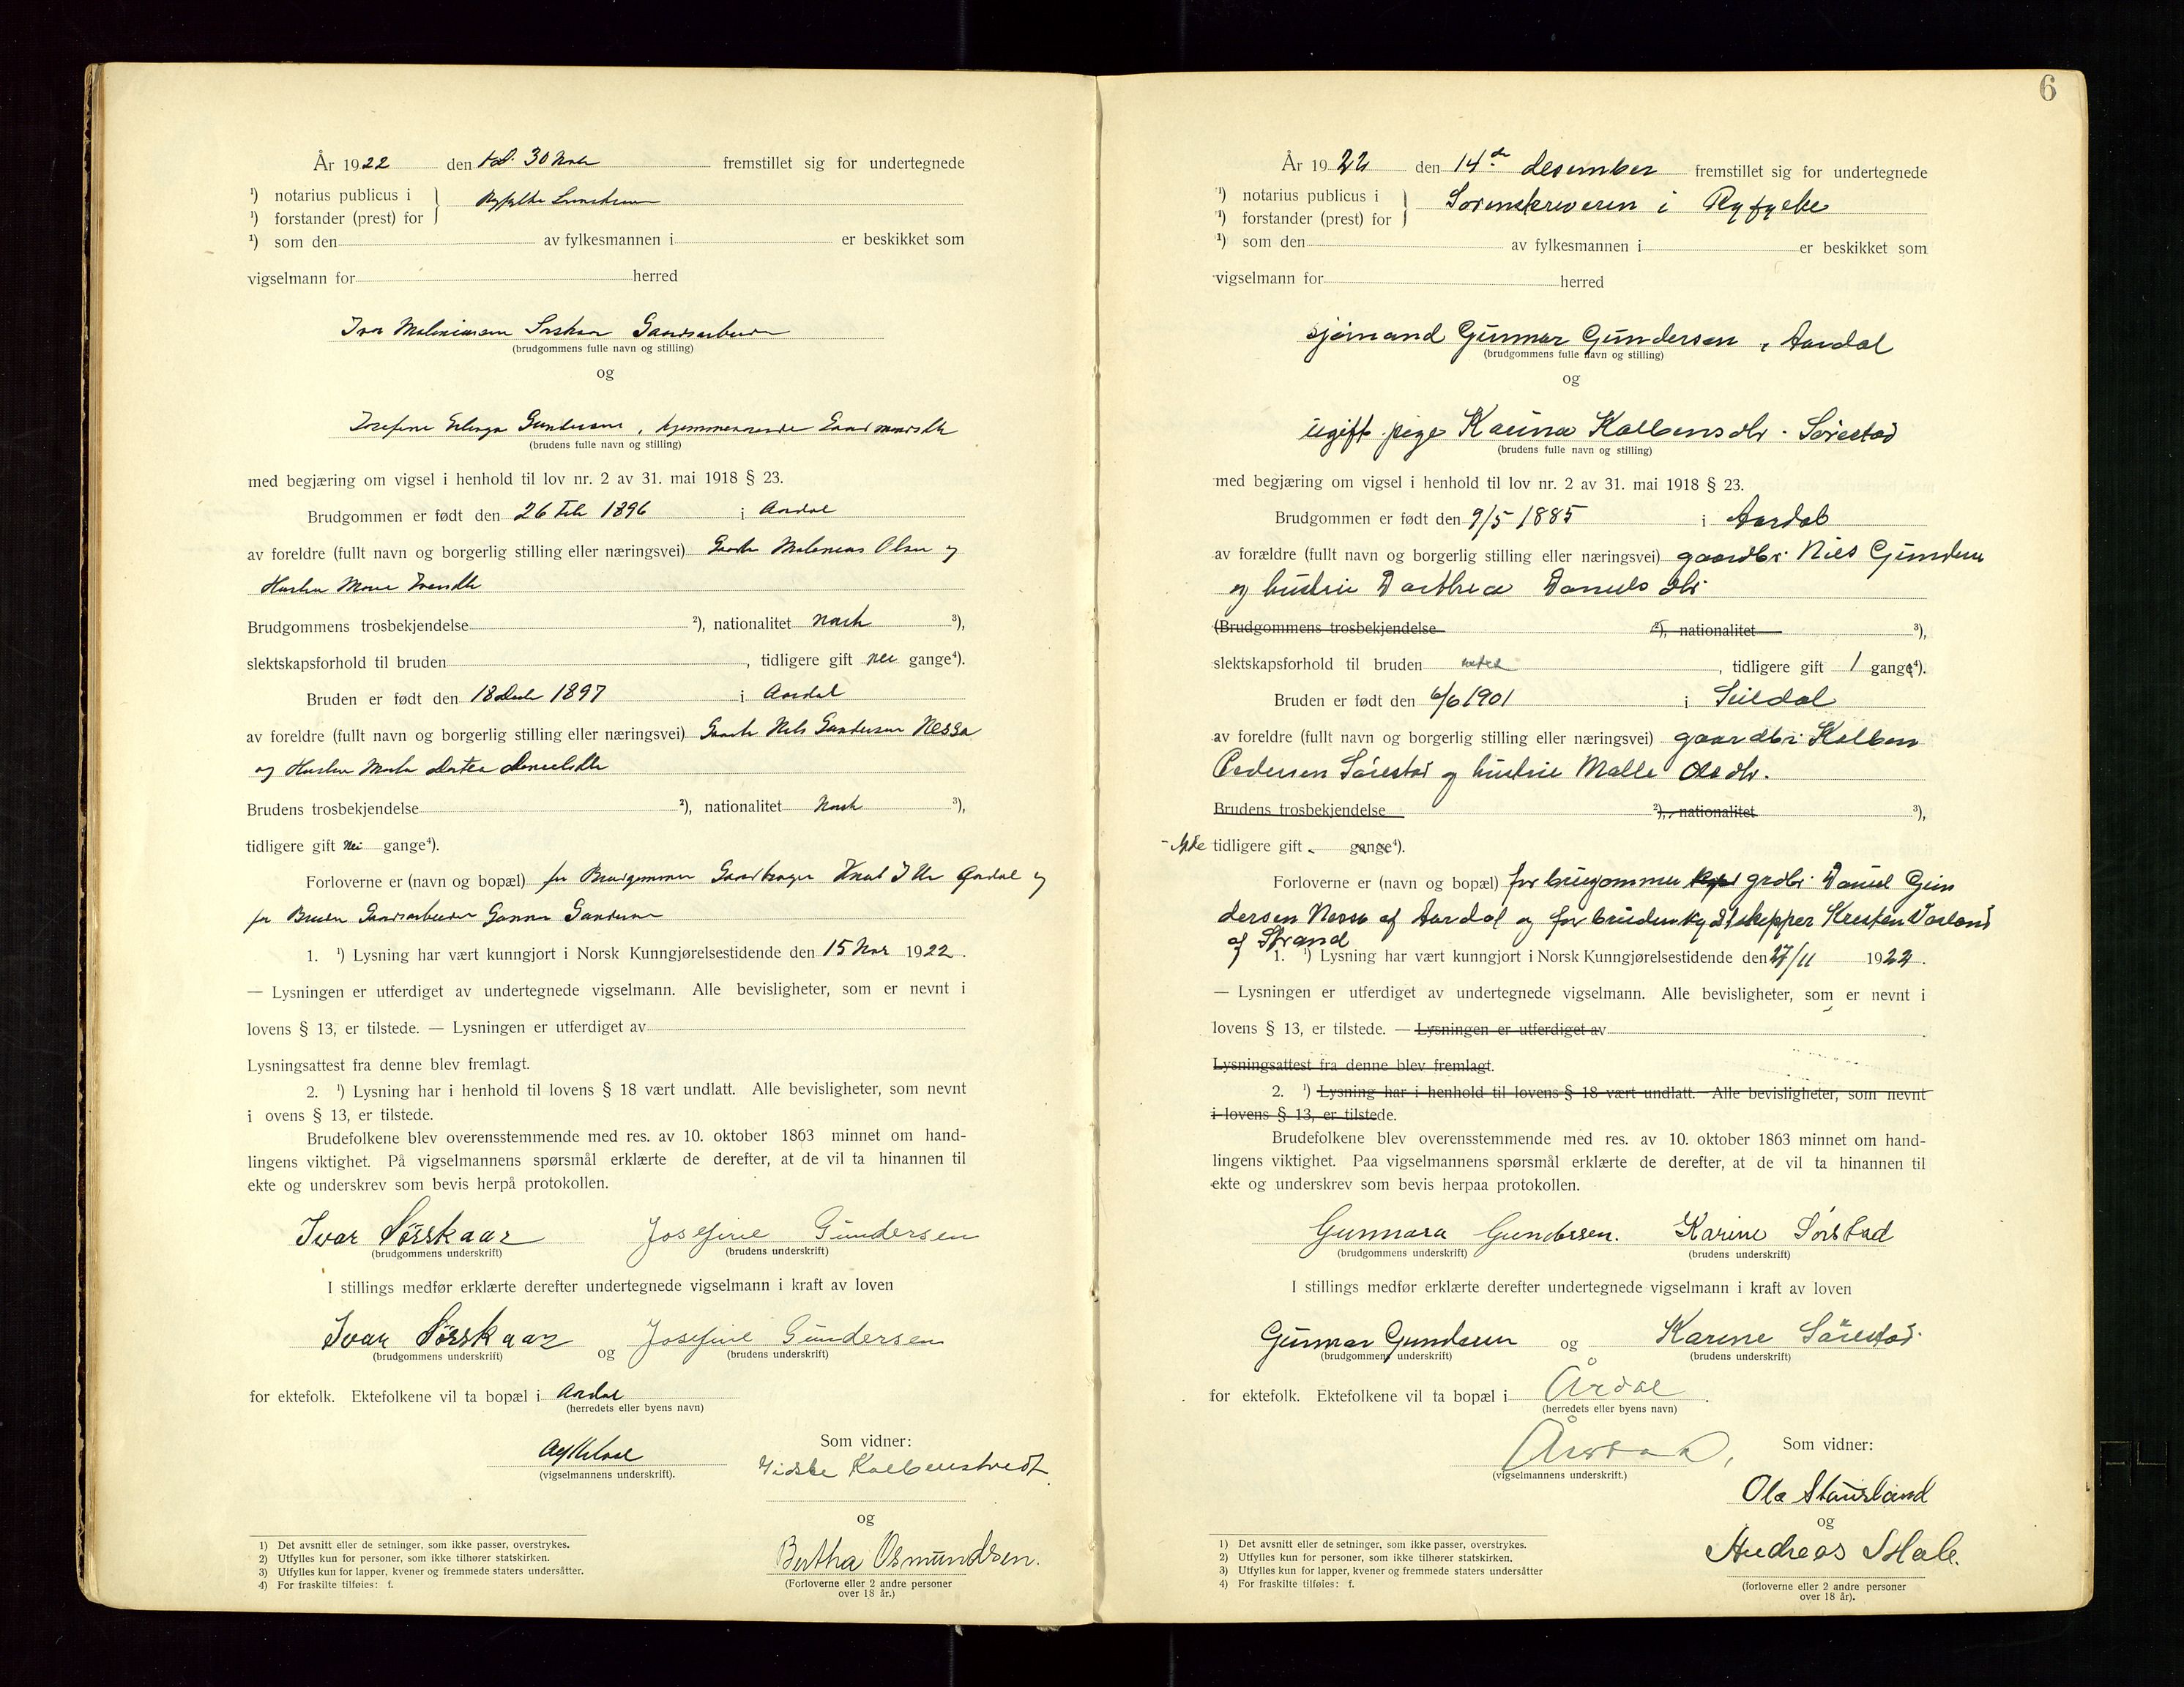 År 1922 den 30 Nov fremstillet sig for undertegnede
¹) notarius publicus i
¹) forstander (prest) for
¹) som den av fylkesmannen i er beskikket som
vigselmann for herred
Ivar Gaardsarbeider
(brudgommens fulle navn og stilling)
og
Josefine Gundersen, hjemmeværende
(brudens fulle navn og stilling)
med begjæring om vigsel i henhold til lov nr. 2 av 31. mai 1918 § 23.
Brudgommen er født den 26 Feb 1896 i Aardal
av foreldre (fullt navn og borgerlig stilling eller næringsvei) Gaardb Malenius Olsen og
Brudgommens trosbekjendelse ²), nationalitet norsk ³),
slektskapsforhold til bruden , tidligere gift nei gange⁴).
Bruden er født den 18 1897 i Aardal
av foreldre (fullt navn og borgerlig stilling eller næringsvei) Gaardb Nils Gundersen Nessa
og Hustru Dortea
Brudens trosbekjendelse ²), nationalitet Norsk ³),
tidligere gift Nei gange⁴).
Forloverne er (navn og bopæl) for Brudgommen Gaardbruger Knut Aardal og
for Bruden Gaardsarbeider Gunnar Gundersen
1. ¹) Lysning har vært kunngjort i Norsk Kunngjørelsestidende den 15 Nov 1922.
— Lysningen er utferdiget av undertegnede vigselmann. Alle bevisligheter, som er nevnt i
lovens § 13, er tilstede. — Lysningen er utferdiget av
Lysningsattest fra denne blev fremlagt.
2. ¹) Lysning har i henhold til lovens § 18 vært undlatt. Alle bevisligheter, som nevnt
i ovens § 13, er tilstede.
Brudefolkene blev overensstemmende med res. av 10. oktober 1863 minnet om hand-
lingens viktighet. På vigselmannens spørsmål erklærte de derefter, at de vil ta hinannen til
ekte og underskrev som bevis herpå protokollen.
Ivar Sörskaar Josefine Gundersen
(brudgommens underskrift) (brudens underskrift)
I stillings medfør erklærte derefter undertegnede vigselmann i kraft av loven
Ivar Sörskaar og Josefine Gundersen
(brudgommens underskrift) (brudens underskrift)
for ektefolk. Ektefolkene vil ta bopæl i Aardal
(herredets eller byens navn)
Som vidner:
(vigselmannens underskrift).
og
Bertha Osmundsen.
(Forloverne eller 2 andre personer
over 18 år.)
1) Det avsnitt eller de setninger, som ikke passer, overstrykes.
2) Utfylles kun for personer, som ikke tilhører statskirken.
3) Utfylles kun for lapper, kvener og fremmede staters undersåtter.
4) For fraskilte tilføies: f.
6
År 1922 den 14de desember fremstillet sig for undertegnede
¹) notarius publicus i Sorenskriveren i Ryfylke
¹) forstander (prest) for
¹) som den av fylkesmannen i er beskikket som
vigselmann for herred
sjömand Gunnar Gundersen, Aardal
(brudgommens fulle navn og stilling)
og
ugift pige Karina Kolbensdtr. Sörestad
(brudens fulle navn og stilling)
med begjæring om vigsel i henhold til lov nr. 2 av 31. mai 1918 § 23.
Brudgommen er født den 9/5 1885 i Aardal
av forældre (fullt navn og borgerlig stilling eller næringsvei) gaardbr. Nils Gundersen
og hustru Dorthea Daniels dtr
(Brudgommens trosbekjendelse ²), nationalitet ³),
slektskapsforhold til bruden intet , tidligere gift 1 gange⁴).
Bruden er født den 6/6 1901 i Suldal
av foreldre (fullt navn og borgerlig stilling eller næringsvei) gaardbr. Kolben
Pedersen Sörestad og hustru Malle Olsdtr.
Brudens trosbekjendelse ²), nationalitet ³),
- ikke tidligere gift gange⁴).
Forloverne er (navn og bopæl) for brugommen grdbr. Daniel Gun
dersen Nessa af Aardal og for bruden Kresten
af Strand
1. ¹) Lysning har vært kunngjort i Norsk Kunngjørelsestidende den 27/11 1922.
— Lysningen er utferdiget av undertegnede vigselmann. Alle bevisligheter, som er nevnt i
lovens § 13, er tilstede. — Lysningen er utferdiget av
Lysningsattest fra denne blev fremlagt.
2. ¹) Lysning har i henhold til lovens § 18 vært undlatt. Alle bevisligheter, som nevnt
i lovens § 13, er tilstede.
Brudefolkene blev overensstemmende med res. av 10. oktober 1863 minnet om hand-
lingens viktighet. Paa vigselmannens spørsmål erklærte de derefter, at de vil ta hinannen til
ekte og underskrev som bevis herpaa protokollen.
Gunnar Gundersen. Karine Sörstad
(brudgommens underskrift) (brudens underskrift)
I stillings medfør erklærte derefter undertegnede vigselmann i kraft av loven
Gunnar Gundersen og Karine Sörestad.
(brudgommens underskrift) (brudens underskrift)
for ektefolk. Ektefolkene vil ta bopæl i Årdal
(herredets eller byens navn)
Som vidner:
(vigselmannens underskrift.)
Ola
og
Andreas
(forloverne eller 2 andre personer
over 18 år).
1) Det avsnitt eller de setninger, som ikke passer, overstrykes.
2) Utfylles kun for personer, som ikke tilhører statskirken.
3) Utfylles kun for lapper, kvener og fremmede staters undersåtter
4) For fraskilte tilføies: f.